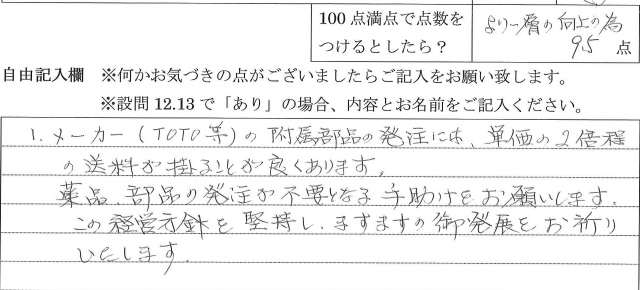 100 点満点で点数を
つけるとしたら？
より一層の向上の為
95 点
自由記入欄 ※何かお気づきの点がございましたらご記入をお願い致します。
※設問 12.13 で「あり」の場合、内容とお名前をご記入ください。
1. メーカー(TOTO等)の附属部品の発注には、単価の2倍程
の送料が掛ることが良くあります。
薬品、部品の発注が不要となる手助けをお願いします。
この経営方針を堅持し、ますますの御発展をお祈り
いたします。